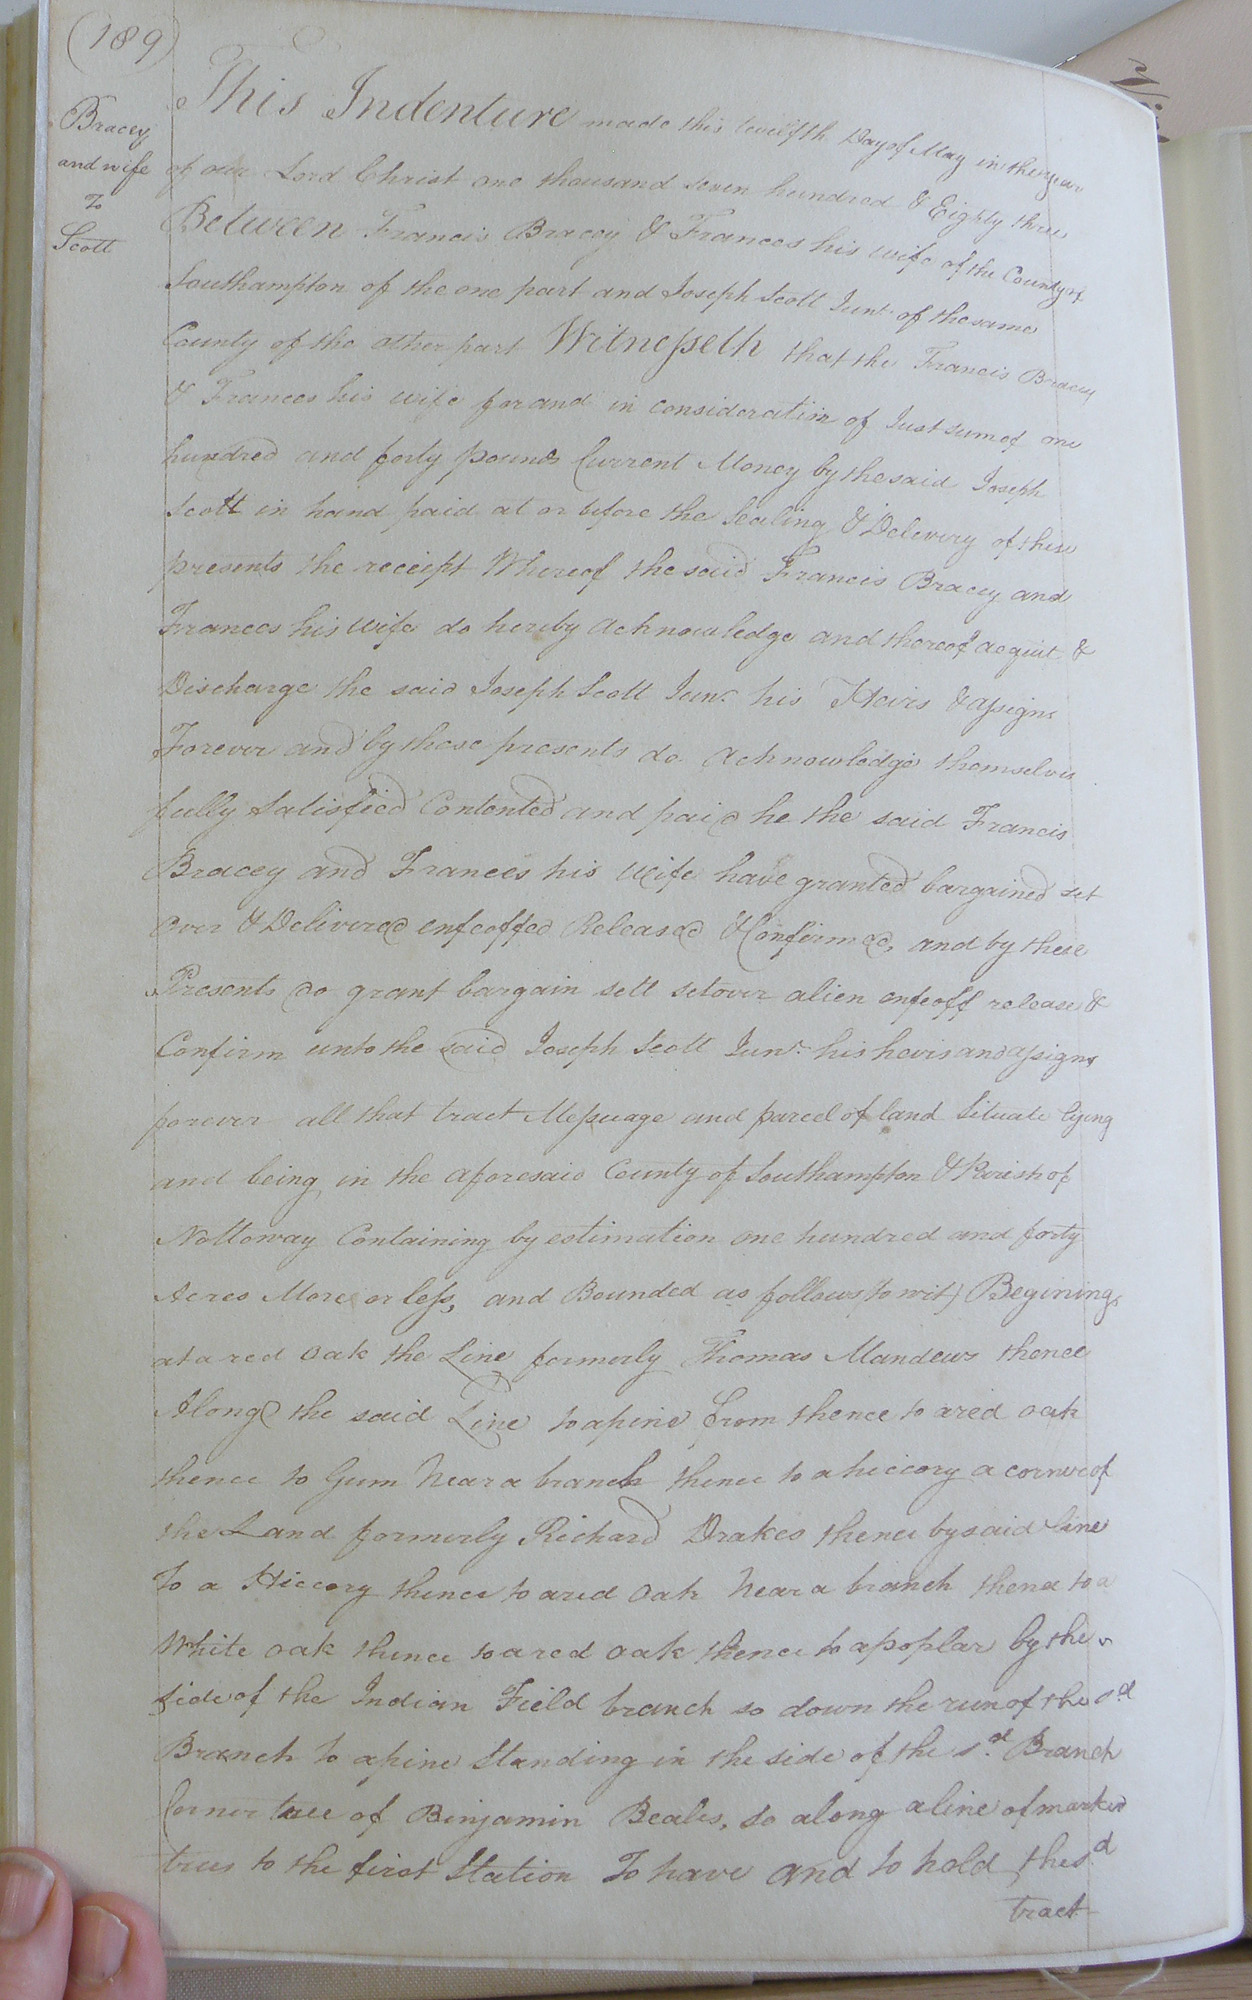 (189)
Bracey
and wife
To
Scott
This Indenture made this twelfth Day of May in the year
of our Lord Christ one thousand seven hundred & Eighty three
Between Francis Bracey & Frances his wife of the County of
Southampton of the one part and Joseph Scott Junr. of the same
County of the other part Witnesseth that the Francis Bracey
& Frances his wife for and in consideration of Just sum of one
hundred and forty pounds Current Money by the said Joseph
Scott in hand paid at or before the Sealing & Delivery of these
presents the receipt Whereof the said Francis Bracey and
Frances his Wife do hereby Acknowledge and thereof acquit &
Discharge the said Joseph Scott Junr. his Heirs & assigns
Forever and by these presents do Acknowledge themselves
fully Satisfied Contented and paid he the said Francis
Bracey and Frances his Wife have granted bargained set
over & Delivered enfeoffed Released & Confirmed, and by these
Presents do grant bargain sell setover alien enfeoff release &
Confirm unto the said Joseph Scott Junr. his heirs and assigns
forever all that tract Messuage and parcel of land Situate lying
and being in the aforesaid County of Southampton & Parish of
Nottoway Containing by estimation one hundred and forty
Acres More or less, and Bounded as follows (to wit) Begining
at a red Oak the Line formerly Thomas Mandews thence
Along the said Line to a pine from thence to a red oak
thence to Gum Near a branch thence to a hiccory a corner of
the Land formerly Richard Drakes thence by said line
To a Hiccory thence to a red Oak Near a branch thence to a
White oak thence to a red oak thence to a poplar by the
side of the Indian Field branch so down the run of the sd
Branch to a pine Standing in the side of the sd. Branch
Corner tree of Benjamin Beales, so along a line of marked
trees to the first Station To have and to hold the sd
tract